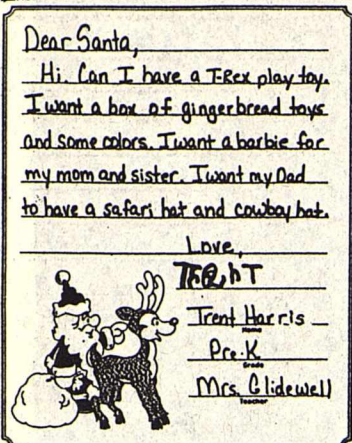 Dear Santa,
Hi. Can I have a T-Rex play toy.
I want a box of gingerbread toys
and some colors. I want a barbie for
my mom and sister. I want my Dad
to have a safari hat and cowboy hat.
Love,
TReNT
Trent Harris
Name
Pre-K
Grade
Mrs. Glidewell
Teacher